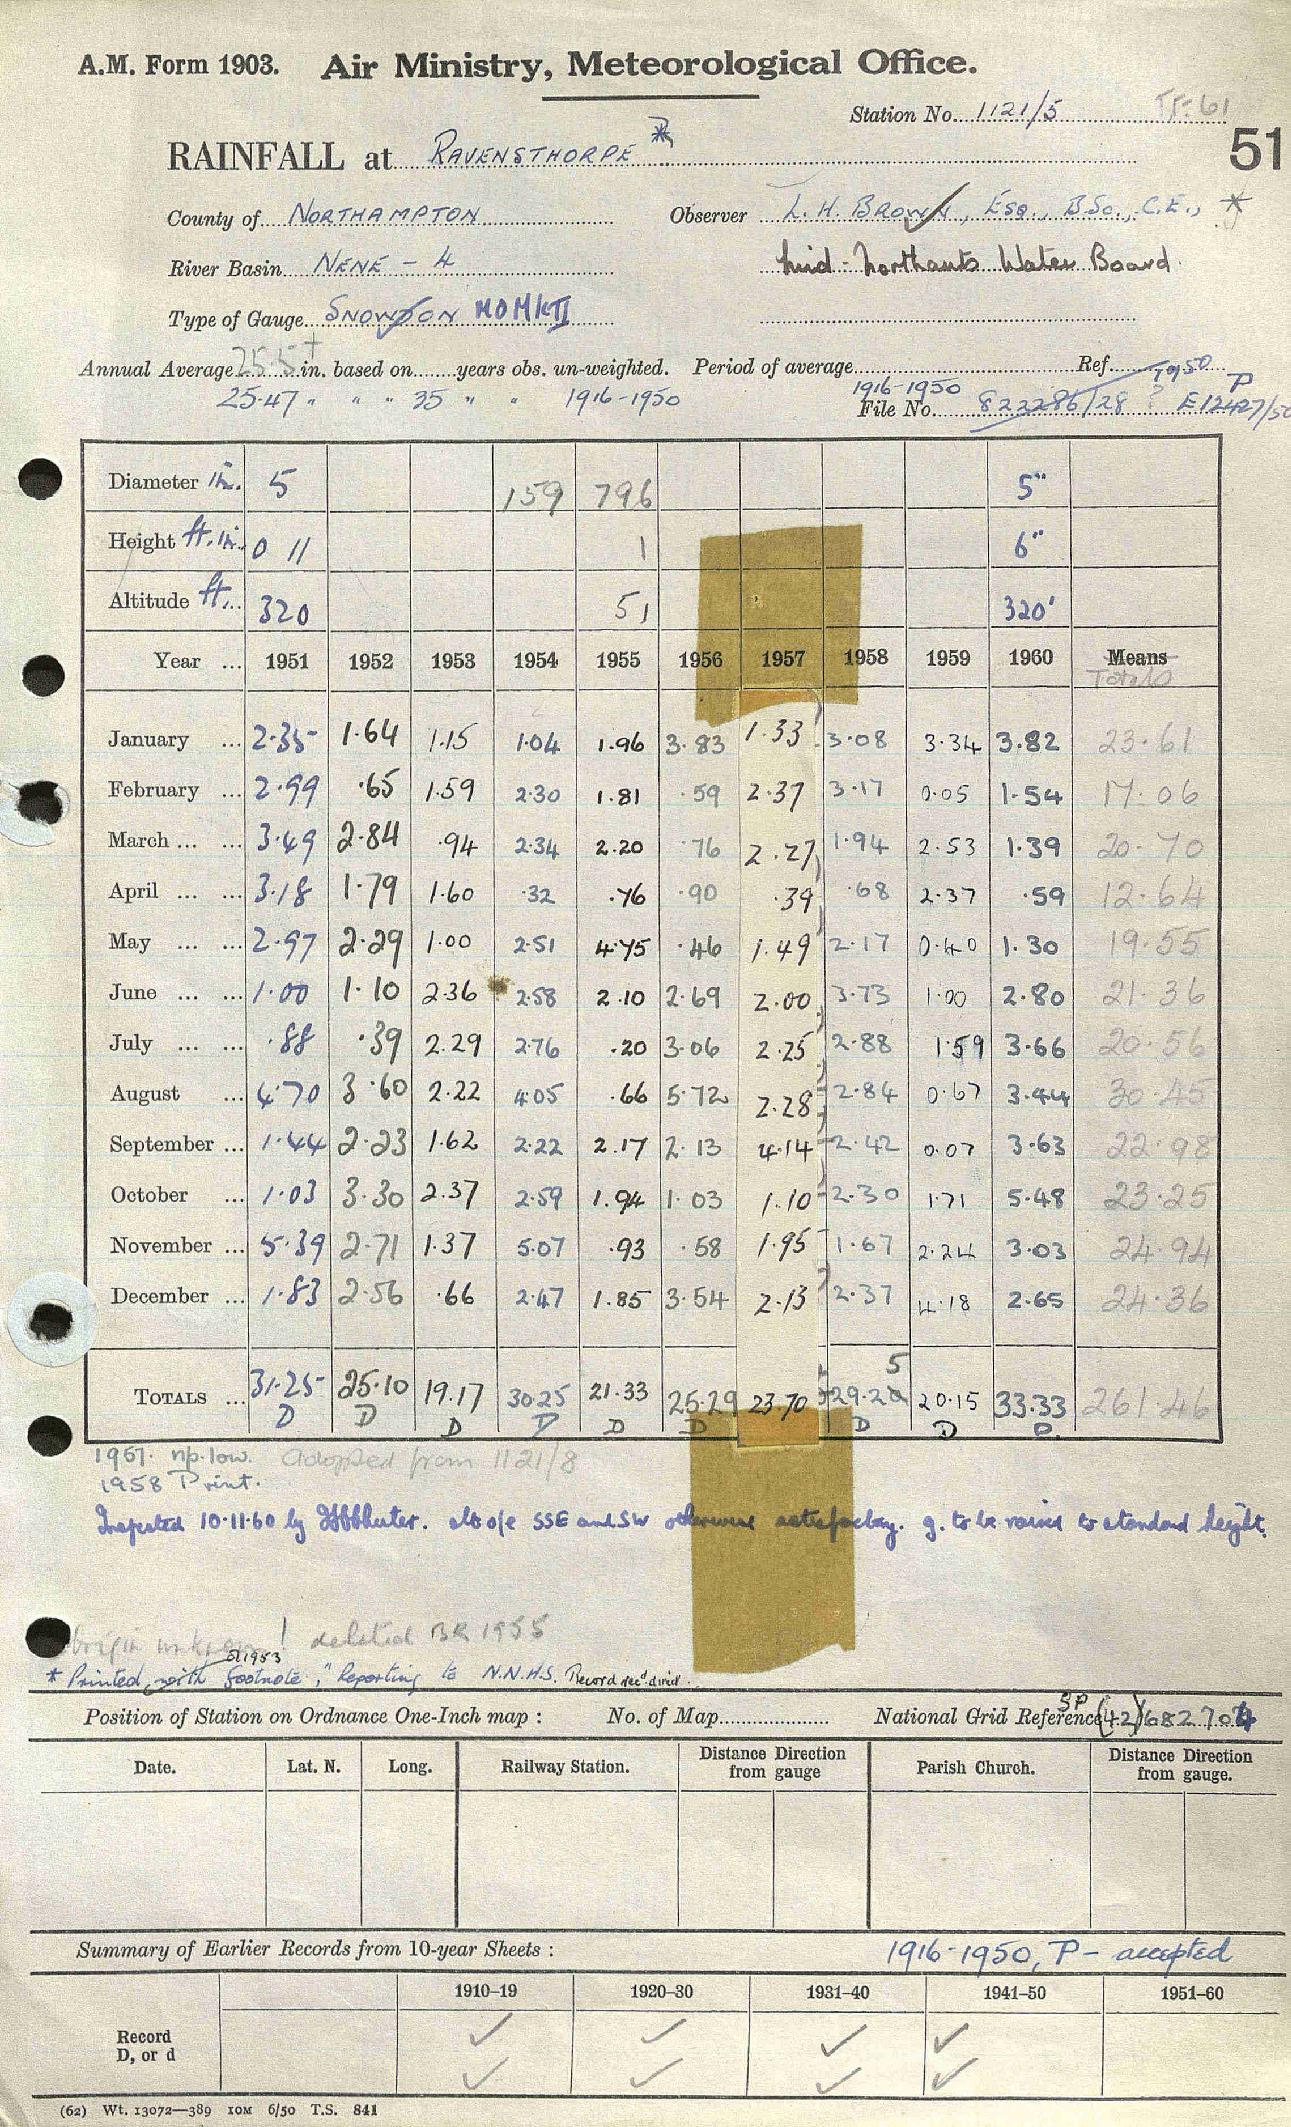 A.M. Form 1903. Air Ministry, Meteorological Office.
Station No. 1121/5
RAINFALL at RAVENSTHORPE *
51
County of NORTHAMPTON
Observer L. H. BROWN, ESQ., B.Sc., C.E., *
River Basin NENE - 4
Mid-Northants Water Board
Type of Gauge SNOWDON MO MK II
Annual Average 25.5 in. based on years obs. un-weighted. Period of average 1916-1950 Ref.
25.47 " " " 35 " " 1916-1950
File No. 822286/28 ? E12427/50
Diameter in. 5 159 796 5"
Height ft. in. 0 11 1 6"
Altitude ft. 320 51 320'
Year ... 1951 1952 1953 1954 1955 1956 1957 1958 1959 1960 Means
Totals
January ... 2.35 1.64 1.15 1.04 1.96 3.83 1.33 3.08 3.34 3.82 23.61
February ... 2.99 .65 1.59 2.30 1.81 .59 2.37 3.17 0.05 1.54 17.06
March ... ... 3.49 2.84 .94 2.34 2.20 .76 2.27 1.94 2.53 1.39 20.70
April ... ... 3.18 1.79 1.60 .32 .76 .90 .39 .68 2.37 .59 12.64
May ... ... 2.97 2.29 1.00 2.51 4.75 .46 1.49 2.17 0.40 1.30 19.55
June ... ... 1.00 1.10 2.36 2.58 2.10 2.69 2.00 3.73 1.00 2.80 21.36
July ... ... .88 .39 2.29 2.76 .20 3.06 2.25 2.88 1.59 3.66 20.56
August ... 4.70 3.60 2.22 4.05 .66 5.72 2.28 2.84 0.67 3.44 30.45
September ... 1.44 2.23 1.62 2.22 2.17 2.13 4.14 2.42 0.07 3.63 22.98
October ... 1.03 3.30 2.37 2.59 1.94 1.03 1.10 2.30 1.71 5.48 23.25
November ... 5.39 2.71 1.37 5.07 .93 .58 1.95 1.67 2.24 3.03 24.94
December ... 1.83 2.56 .66 2.47 1.85 3.54 2.13 2.37 4.18 2.65 24.36
5
TOTALS ... 31.25 25.10 19.17 30.25 21.33 25.29 23.70 29.20 20.15 33.33 261.46
D D D D D D D D D
1957. np. low. Adopted from 1121/8
1958 Print.
Inspected 10.11.60 by SSE and SW otherwise satisfactory. g. to be raised to standard height.
origin unknown! deleted BR 1955
* Printed, with footnote, "Reporting to N.N.H.S. Record rec'd direct.
Position of Station on Ordnance One-Inch map : No. of Map National Grid Reference SP (42) 682704
Date. Lat. N. Long. Railway Station. Distance Direction from gauge Parish Church. Distance Direction from gauge.
Summary of Earlier Records from 10-year Sheets : 1916-1950, P - accepted
1910–19 1920–30 1931–40 1941–50 1951–60
Record
D, or d
(62) Wt. 13072—389 10M 6/50 T.S. 841